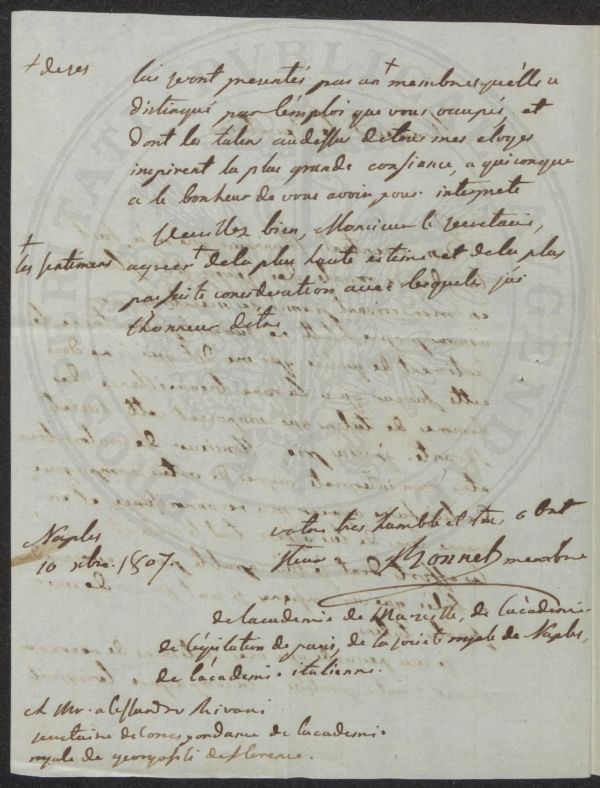 + de ses
lui seront presentés par un + membre qu'elle a
distingué par l'emploi que vous occupés, et
dont les talens audessus de tous mes eloges
inspirent la plus grande confiance, a quiconque
a le bonheur de vous avoir pour interprete
Veuillez bien, Monsieur le secretaire,
+ les sentimens
agreer + de la plus haute estime et de la plus
parfaite consideration avec lesquels j'ai
l'honneur d'etre
votre tres humble et tres obst
Naples
10 xbre. 1807.
membre
de l'academie de Marseille, de l'academie
de legislation de paris, de la societé royale de Naples,
de l'academie italienne.
a Mr. alessandro Rivani
secretaire de correspondance de l'academie
royale de georgofili de florence.